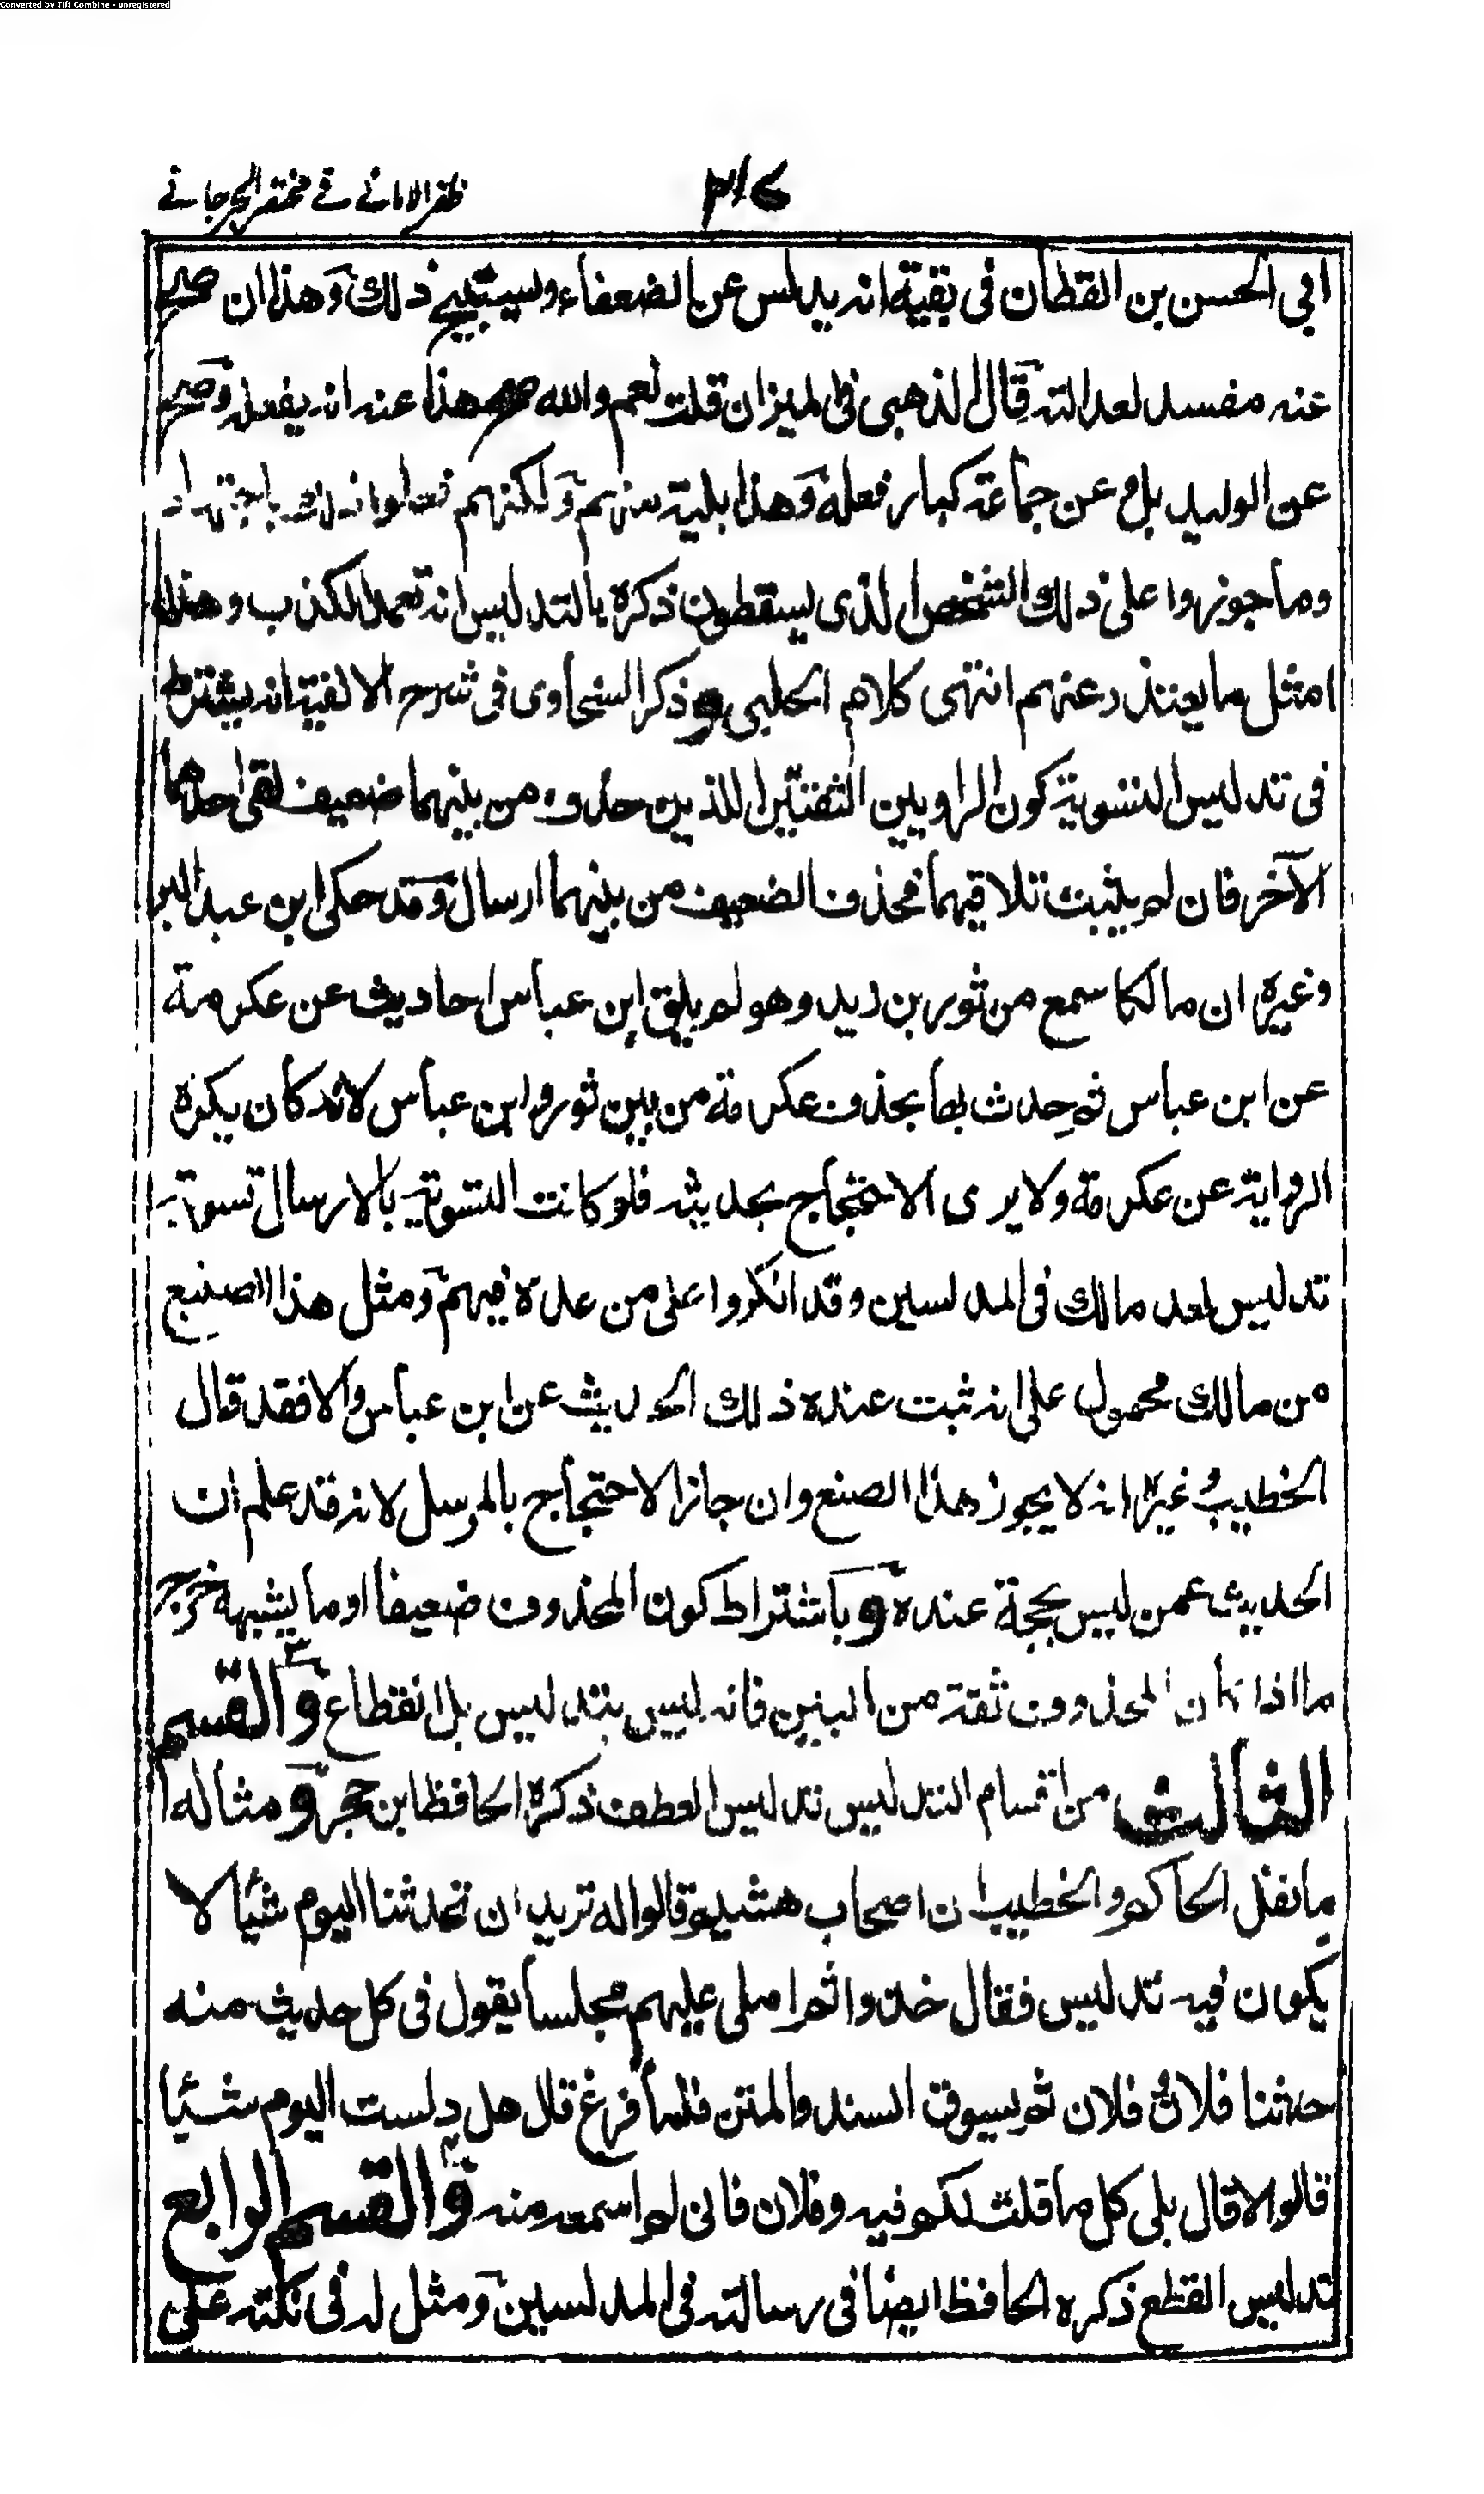 Converted by Tiff Combine - unregistered
٢١٤ ظفر الامانے فے مختصر الجرجانے
ابي الحسن بن القطان فى بقية انه يدلس عن الضعفاء ويستبيح ذلك وهذا ان صح
عنه مفسد لعدالته قال الذهبى فى الميزان قلت نعم والله صح هذا عنه انه يفعله وصح
عن الوليد بل وعن جماعة كبار فعله وهذا بلية منهم ولكنهم فعلوا ذلك باجتهاد
وما جوزوا على ذلك الشخص الذى يسقطون ذكره بالتدليس انه تعمد الكذب وهذا
امثل ما يعتذر عنهم انتهى كلام الحلبي وذكر السخاوى فى شرح الالفية انه يشترط
فى تدليس التسوية كون الراويين الثقتين اللذين حذف من بينهما ضعيف لقى احدهما
الآخر فان لم يثبت تلاقيهما فحذف الضعيف من بينهما ارسال وقد حكى ابن عبد البر
وغيره ان مالكا سمع من ثور بن زيد وهو لم يلق ابن عباس احاديث عن عكرمة
عن ابن عباس ثم حدث بها بحذف عكرمة من بين ثور وابن عباس لانه كان يكره
الرواية عن عكرمة ولا يرى الاحتجاج بحديثه فلو كانت التسوية بالارسال تسوية
تدليس لعد مالك فى المدلسين وقد انكروا على من عده فيهم ومثل هذا الصنيع
من مالك محمول على انه ثبت عنده ذلك الحديث عن ابن عباس والا فقد قال
الخطيب وغيره انه لا يجوز هذا الصنع وان جاز الاحتجاج بالمرسل لانه قد علم ان
الحديث عمن ليس بحجة عنده وباشتراط كون المحذوف ضعيفا او ما يشبهه خرج
ما اذا كان المحذوف ثقة من البنين فانه ليس بتدليس بل انقطاع والقسم
الثالث من اقسام التدليس تدليس العطف ذكره الحافظ ابن حجر ومثاله
ما نقل الحاكم والخطيب ان اصحاب هشيم قالوا له تريد ان تحدثنا اليوم شيئا لا
يكون فيه تدليس فقال خذوا ثم املى عليهم مجلسا يقول فى كل حديث منه
حدثنا فلان وفلان ثم يسوق السند والمتن فلما فرغ قال هل دلست اليوم شيئا
قالوا لا قال بلى كل ما قلت لكم فيه وفلان فانى لم اسمعه منه والقسم الرابع
تدليس القطع ذكره الحافظ ايضا فى رسالته فى المدلسين ومثل له فى نكته على